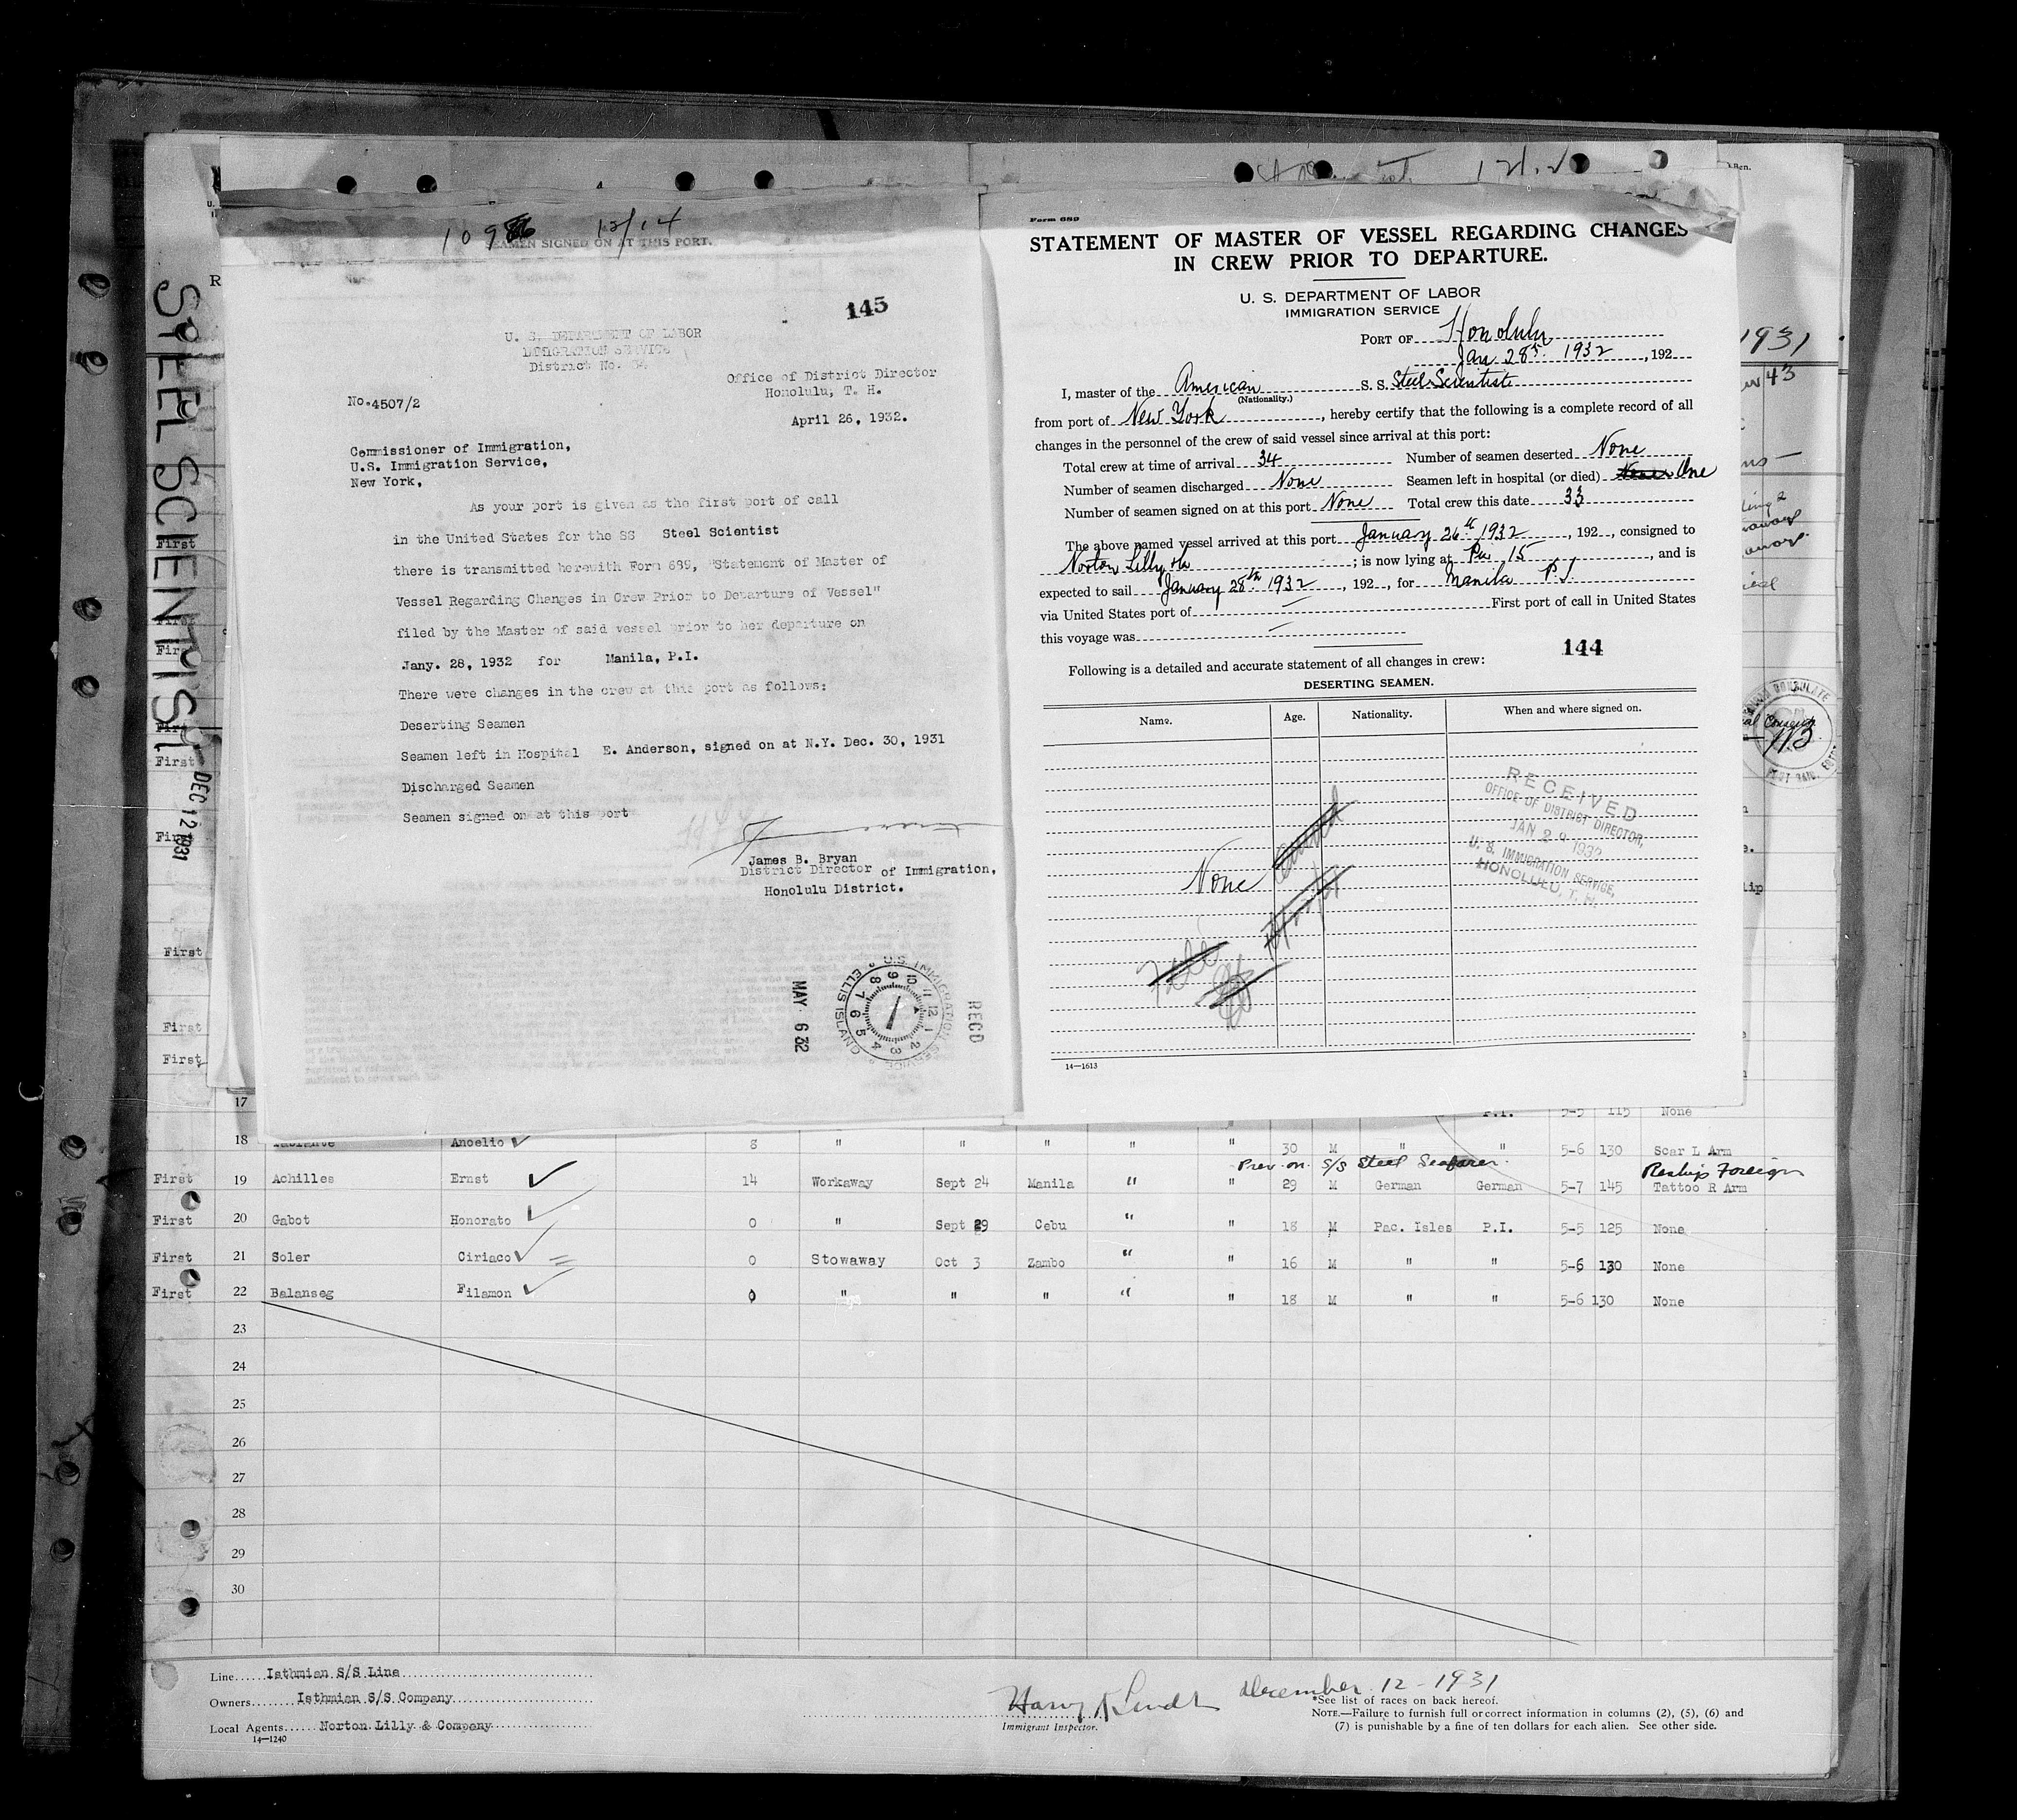 STEEL SCIENTIST
DEC 12 1931
1098 12/14
SEAMEN SIGNED ON AT THIS PORT.
145
U. S. DEPARTMENT OF LABOR
IMMIGRATION SERVICE
District No. 34
Office of District Director
Honolulu, T. H.
No. 4507/2
April 26, 1932.
Commissioner of Immigration,
U.S. Immigration Service,
New York,
As your port is given as the first port of call
in the United States for the SS Steel Scientist
there is transmitted herewith Form 689, "Statement of Master of
Vessel Regarding Changes in Crew Prior to Departure of Vessel"
filed by the Master of said vessel prior to her departure on
Jany. 28, 1932 for Manila, P.I.
There were changes in the crew at this port as follows:
Deserting Seamen
Seamen left in Hospital E. Anderson, signed on at N.Y. Dec. 30, 1931
Discharged Seamen
Seamen signed on at this port
James B. Bryan
District Director of Immigration,
Honolulu District.
MAY 6 32
U.S. IMMIGRATION SERVICE ELLIS ISLAND
RECD
Form 689
STATEMENT OF MASTER OF VESSEL REGARDING CHANGES
IN CREW PRIOR TO DEPARTURE.
U. S. DEPARTMENT OF LABOR
IMMIGRATION SERVICE
PORT OF Honolulu
Jan 28th 1932, 192
I, master of the American S. S. Steel Scientist
(Nationality.)
from port of New York, hereby certify that the following is a complete record of all
changes in the personnel of the crew of said vessel since arrival at this port:
Total crew at time of arrival 34 Number of seamen deserted None
Number of seamen discharged None Seamen left in hospital (or died) None One
Number of seamen signed on at this port None Total crew this date 33
The above named vessel arrived at this port January 26th 1932, 192, consigned to
Norton Lilly & Co; is now lying at Pier 15, and is
expected to sail January 28th 1932, 192, for Manila P.I.
via United States port of First port of call in United States
this voyage was
144
Following is a detailed and accurate statement of all changes in crew:
DESERTING SEAMEN.
Name. Age. Nationality. When and where signed on.
RECEIVED
OFFICE OF DISTRICT DIRECTOR,
JAN 29 1932
U. S. IMMIGRATION SERVICE,
HONOLULU, T. H.
None
File
14—1613
1931
43
17 P.I. 5-5 115 None
18 Anoelio 8 " " " " " 30 M " " 5-6 130 Scar L Arm
Prev. on S/S Steel Seafarer. Reship Foreign
First 19 Achilles Ernst 14 Workaway Sept 24 Manila " " 29 M German German 5-7 145 Tattoo R Arm
First 20 Gabot Honorato 0 " Sept 29 Cebu " " 18 M Pac. Isles P.I. 5-5 125 None
First 21 Soler Ciriaco 0 Stowaway Oct 3 Zambo " " 16 M " " 5-6 130 None
First 22 Balanseg Filamon 0 " " " " " 18 M " " 5-6 130 None
23
24
25
26
27
28
29
30
Line Isthmian S/S Line
Owners Isthmian S/S Company
Local Agents Norton Lilly & Company
14—1240
December 12 - 1931
Immigrant Inspector.
*See list of races on back hereof.
NOTE.—Failure to furnish full or correct information in columns (2), (5), (6) and
(7) is punishable by a fine of ten dollars for each alien. See other side.